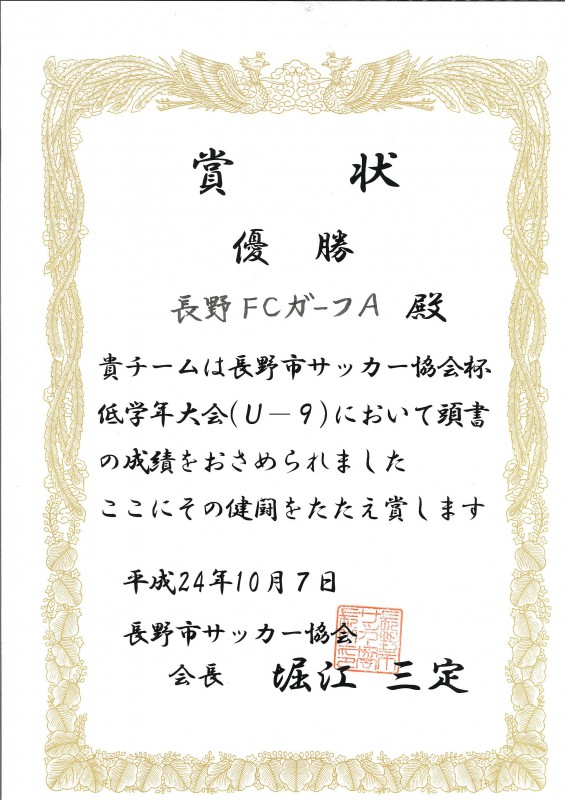 賞 状
優 勝
長野FCガーフA 殿
貴チームは長野市サッカー協会杯
低学年大会(U－9)において頭書
の成績をおさめられました
ここにその健闘をたたえ賞します
平成24年10月7日
長野市サッカー協会
会長 堀江 三定